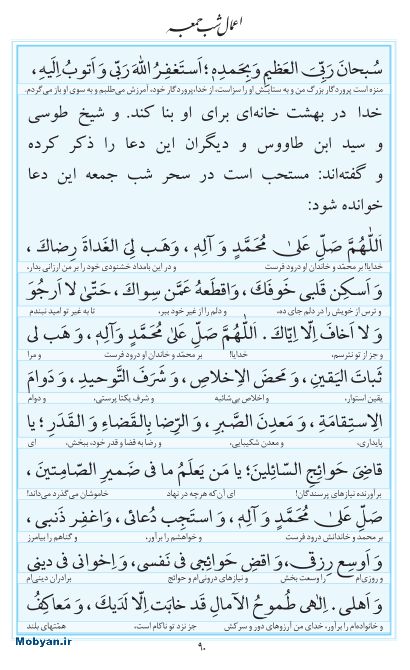 اعمال شب جمعه
سُبحانَ رَبِّیَ العَظیمِ وَ بِحَمدِهِ؛ اَستَغفِرُ اللهَ رَبّی وَ اَتوبُ اِلَیهِ،
منزه است پروردگار بزرگ من و به ستایش او را سزاست، از خدا، پروردگار خود، آمرزش می‌طلبم و به سوی او باز می‌گردم.
خدا در بهشت خانه‌ای برای او بنا کند. و شیخ طوسی
و سید ابن طاووس و دیگران این دعا را ذکر کرده
و گفته‌اند: مستحب است در سحر شب جمعه این دعا
خوانده شود:
اَللّهُمَّ صَلِّ عَلیٰ مُحَمَّدٍ وَ آلِهِ، وَ هَب لِیَ الغَداةَ رِضاکَ،
خدایا! بر محمّد و خاندان او درود فرست و در این بامداد خشنودی خود را بر من ارزانی بدار،
وَ اَسکِن قَلبی خَوفَکَ، وَ اقطَعهُ عَمَّن سِواکَ، حَتّیٰ لا اَرجُوَ
و ترس از خویش را در دلم جای ده، و دلم را از غیر خود ببر، تا به غیر تو امید نبندم
وَ لا اَخافَ اِلّا اِیّاکَ. اَللّهُمَّ صَلِّ عَلیٰ مُحَمَّدٍ وَآلِهِ، وَ هَب لی
و جز از تو نترسم، خدایا! بر محمّد و خاندان او درود فرست و مرا
ثَباتَ الیَقینِ، وَ مَحضَ الاِخلاصِ، وَ شَرَفَ التَّوحیدِ، وَ دَوامَ
یقین استوار، و اخلاص بی‌شائبه و شرف یکتا پرستی، و دوام
الاِستِقامَةِ، وَ مَعدِنَ الصَّبرِ، وَ الرِّضا بِالقَضاءِ وَ القَدَرِ؛ یا
پایداری، و معدن شکیبایی، و رضا به قضا و قدر خود، ببخش، ای
قاضِیَ حَوائِجِ السّائِلینَ؛ یا مَن یَعلَمُ ما فی ضَمیرِ الصّامِتینَ،
برآورنده نیازهای پرسندگان! ای آن که هرچه در نهاد خاموشان می‌گذرد می‌داند!
صَلِّ عَلیٰ مُحَمَّدٍ وَ آلِهِ، وَ استَجِب دُعائی، وَ اغفِر ذَنبی،
بر محمد و خاندانش درود فرست و خواهشم را برآور، و گناهم را بیامرز
وَ اَوسِع رِزقی، وَ اقضِ حَوائِجی فی نَفسی، وَ اِخوانی فی دینی
و روزی‌ام را وسعت بخش و نیازهای درونی‌ام و حوائج برادران دینی‌ام
وَ اَهلی. اِلٰهی طُموحُ الآمالِ قَد خابَت اِلّا لَدَیکَ، وَ مَعاکِفُ
و خانواده‌ام را برآور، خدای من آرزوهای دور و سرکش جز نزد تو ناکام است، همّتهای بلند
۹۰
Mobyan.ir